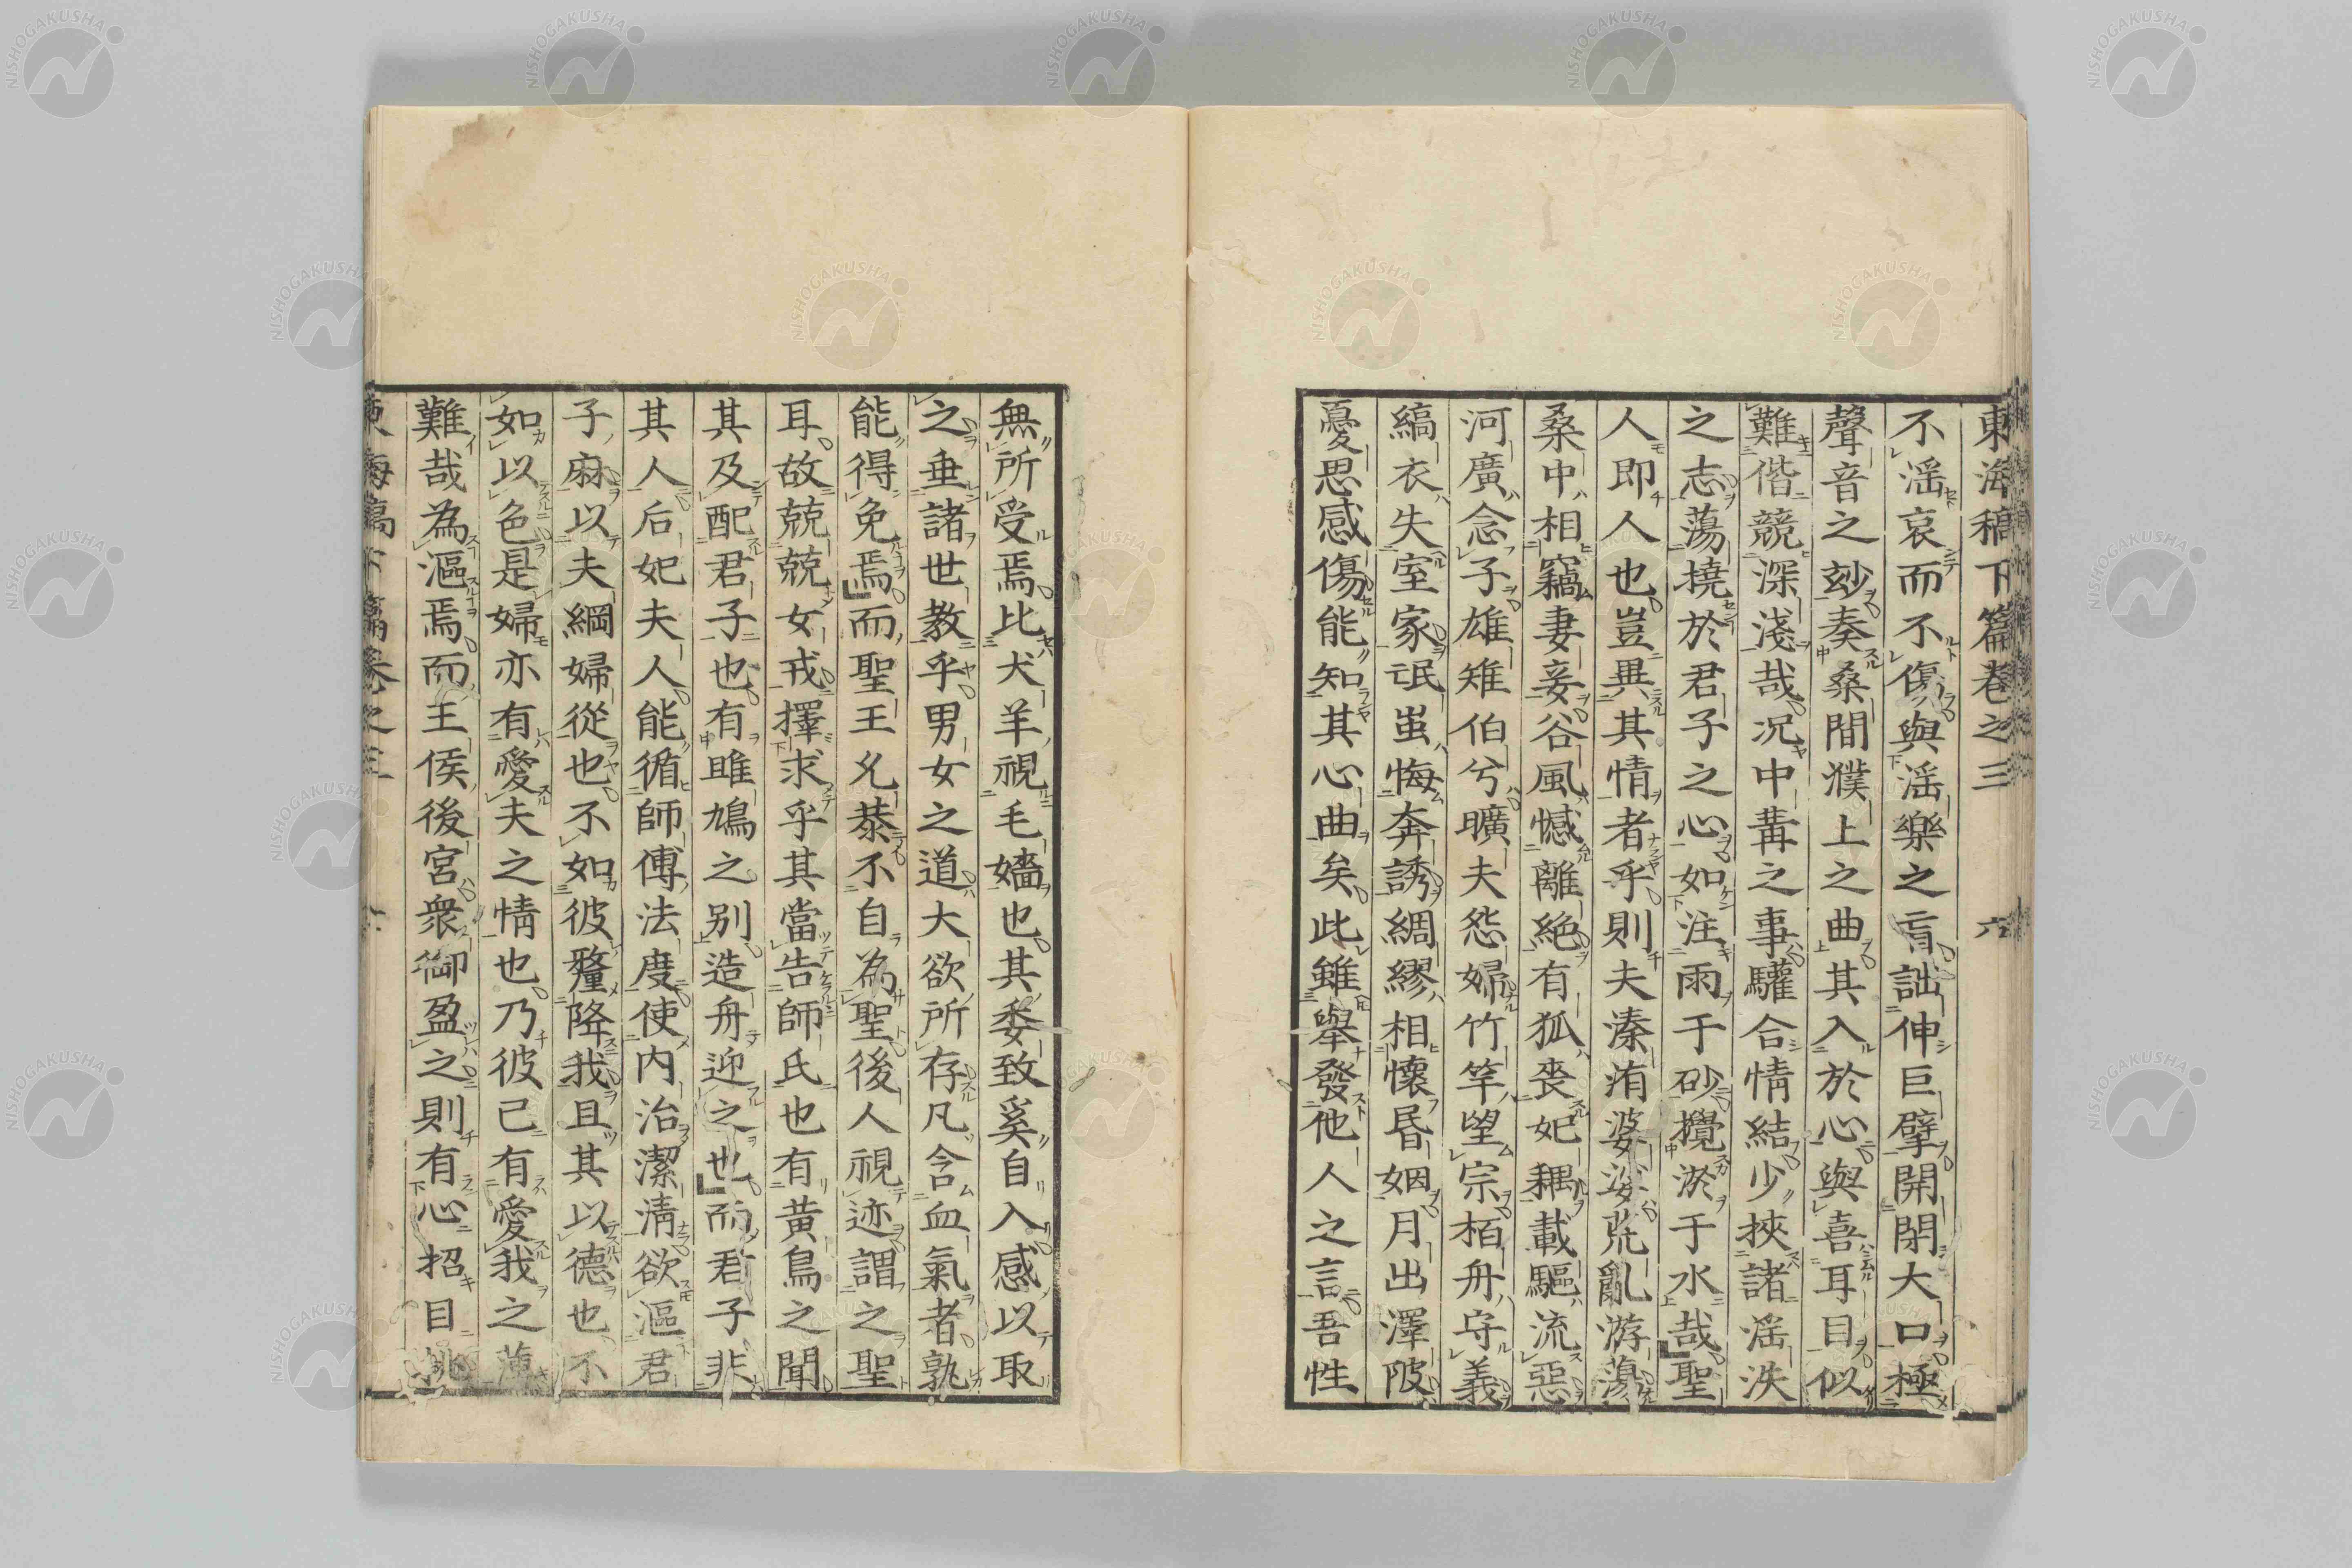 東海稿下篇卷之三 六
不滛哀而不傷與滛樂之 詘伸巨擘開閉大口極
聲音之玅奏桑間濮上之曲其入於心與喜耳目似
難偕競深淺哉况中冓之事驩合情結少挾諸滛泆
之志蕩撓於君子之心如注雨于砂攪淤于水哉聖
人即人也豈異其情者乎則夫溱洧婆娑荒亂游蕩
桑中相竊妻妾谷風憾離絶有狐喪妃耦載驅流惡
河廣念子雄雉伯兮曠夫怨婦竹竿望宗栢舟守義
縞衣失室家氓蚩悔奔誘綢繆相懷昏姻月出澤陂
憂思感傷能知其心曲矣此雖舉發他人之言吾性
無所受焉比犬羊視毛嬙也其委致奚自入感以取
之垂諸世教乎男女之道大欲所存凡含血氣者孰
能得免焉而聖王允恭不自為聖後人視迹謂之聖
耳故兢兢女戒擇求乎其當告師氏也有黄鳥之聞
其及配君子也有雎鳩之別造舟迎之也而君子非
其人后妃夫人能循師傅法度使内治潔清欲漚君
子麻以夫綱婦從也不如彼釐降我且其以德也不
如以色是婦亦有愛夫之情也乃彼己有愛我之薄
難哉為漚焉而王侯後宮衆御盈之則有心招目
東海稿下篇卷之三